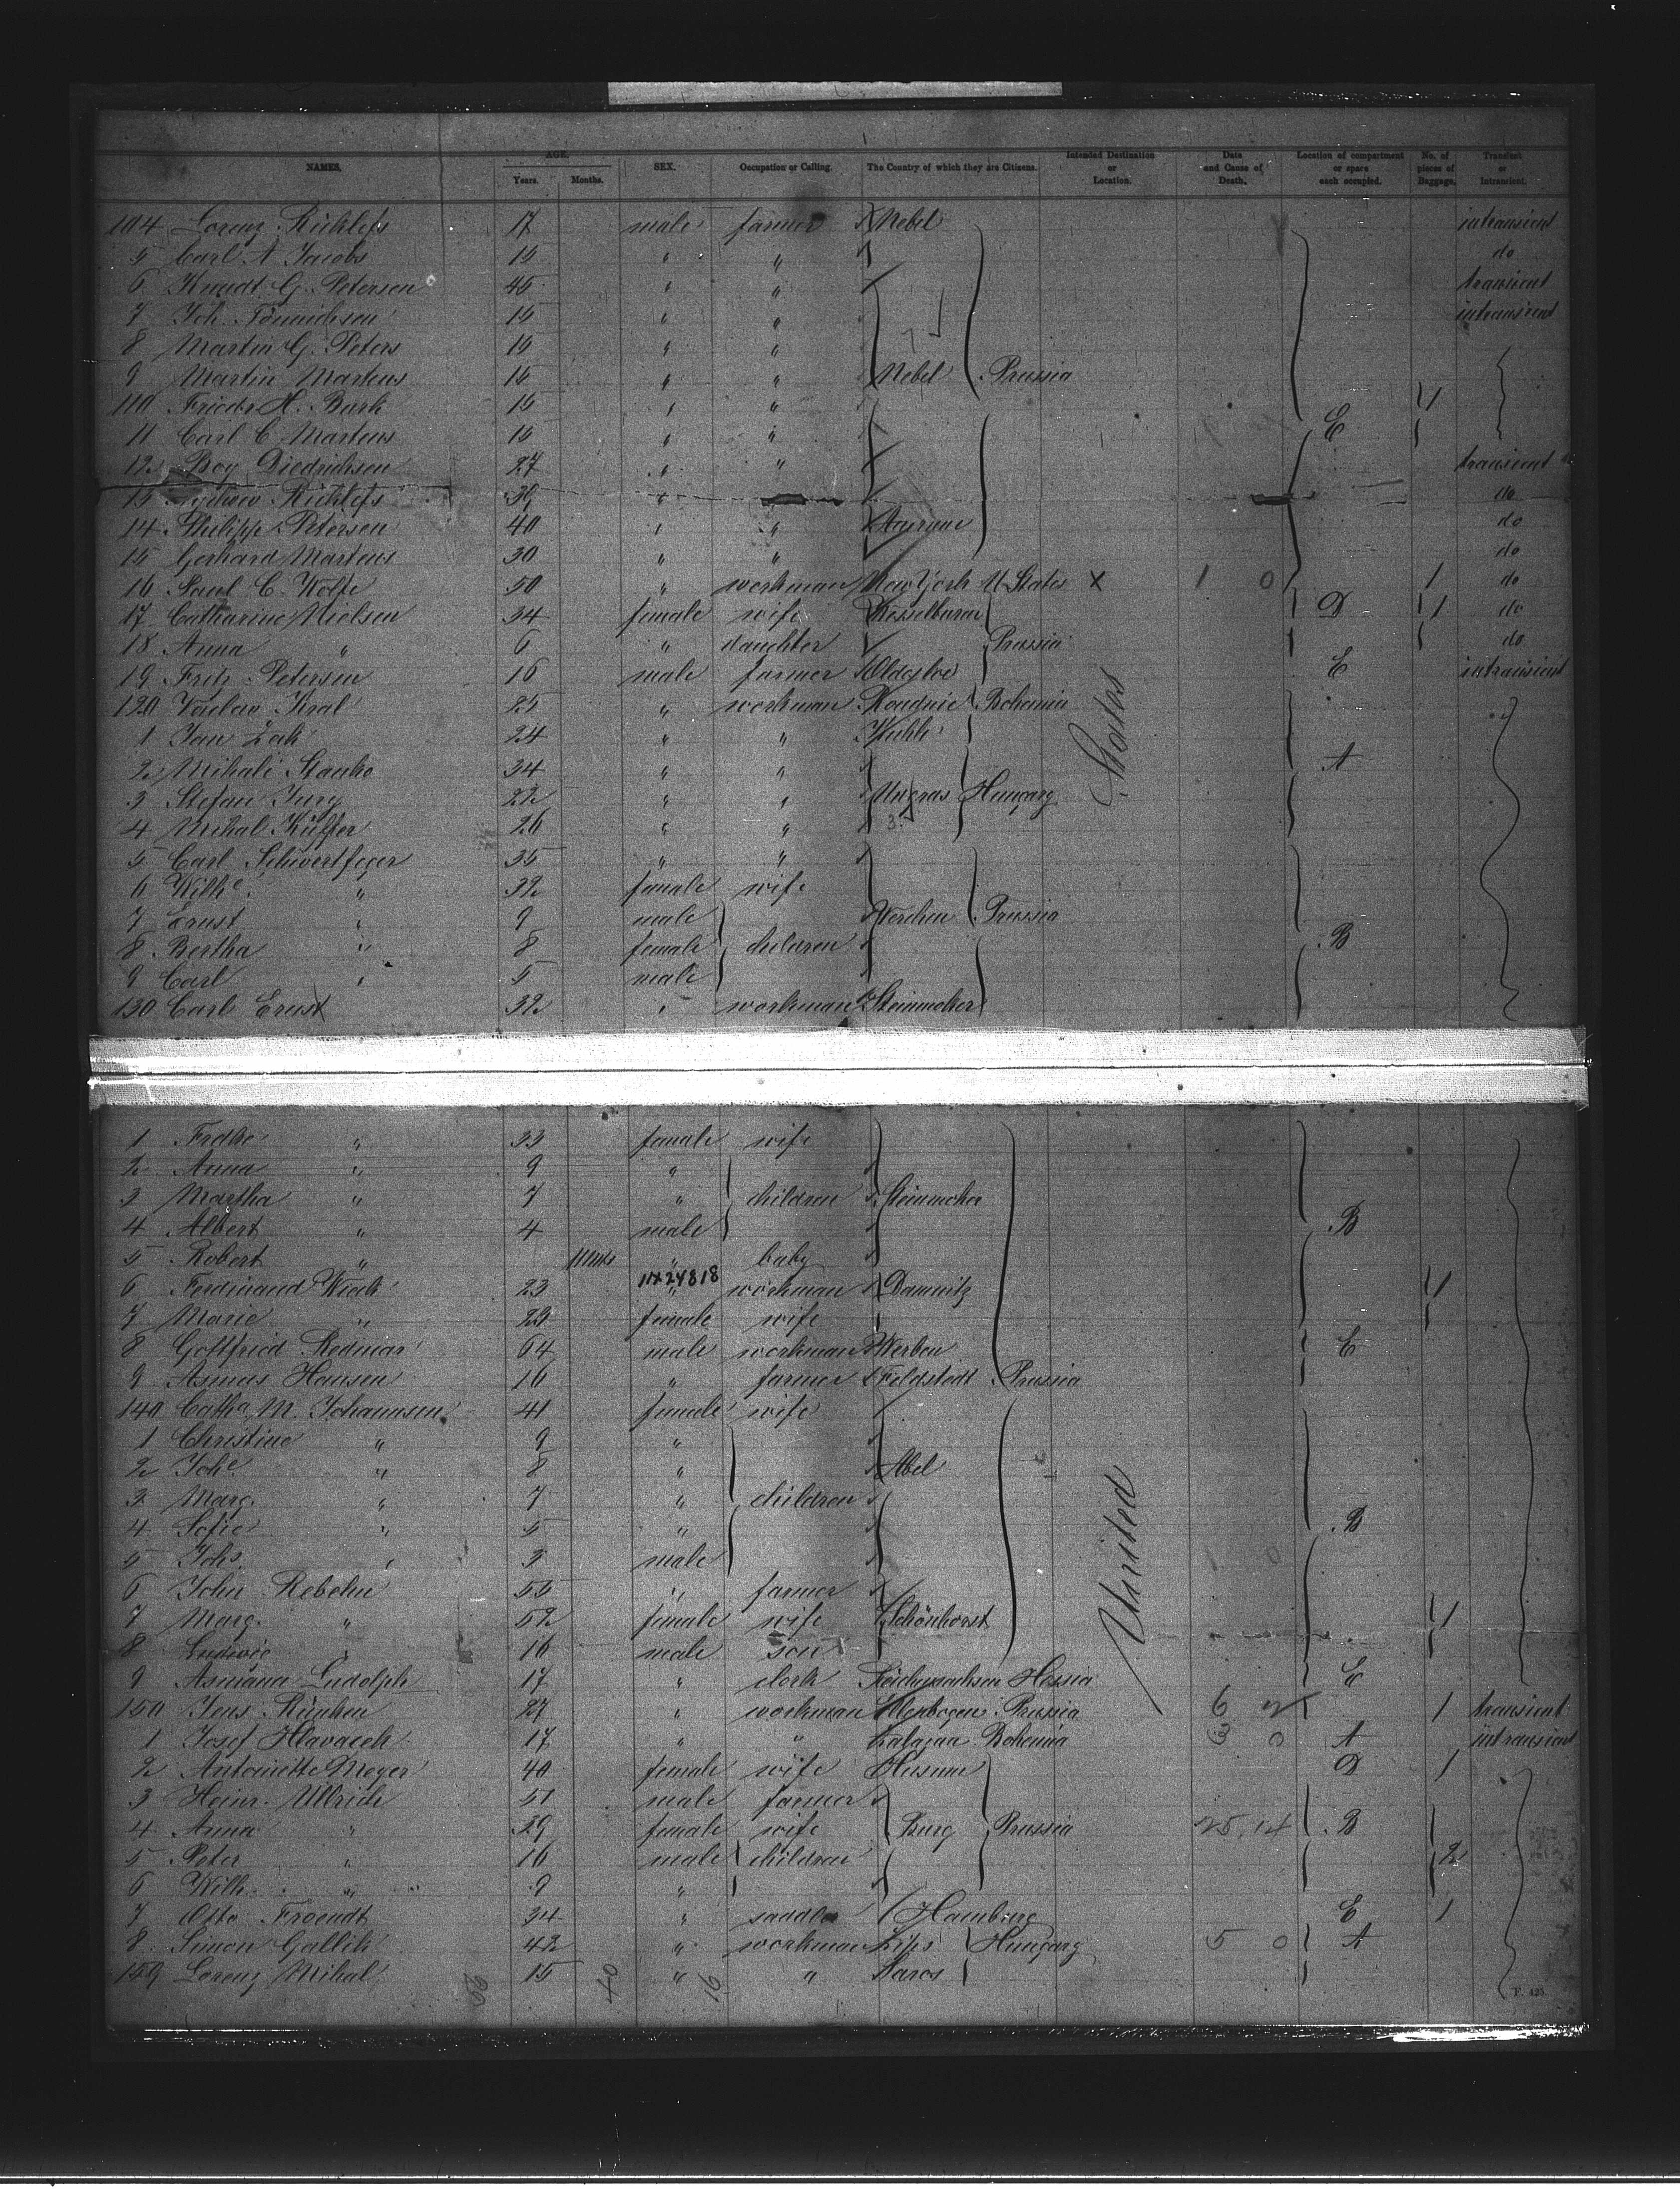 NAMES. AGE. Years. Months. SEX. Occupation or Calling. The Country of which they are Citizens. Intended Destination or Location. Date and Cause of Death. Location of compartment or space each occupied. No. of pieces of Baggage. Transient or Intransient.
104 Lorenz Ricklefs 17 male farmer Nebel intransient
5 Carl A Jacobs 15 " " do
6 Knudt G. Petersen 45 " " transient
7 Joh. Tönnichsen 15 " " intransient
8 Martin G. Peters 15 " "
9 Martin Martens 15 " " Nebel Prussia
110 Friedr H. Burk 15 " "
11 Carl C. Martens 15 " " E
12 Boy Diedrichsen 27 " " transient
13 Ricklefs 39 " " do
14 Philipp Petersen 40 " " do
15 Gerhard Martens 30 " " do
16 Paul C. 50 " workman New York U States X 1 0 1 do
17 Catharine Nielsen 34 female wife Wesselburen D 1 do
18 Anna " 6 " daughter Prussia do
19 Fritz Petersen 16 male farmer Oldesloe E intransient
120 Vaclav Kral 25 " workman Bohemia
1 Jan Zak 24 " "
2 Mihali Stanko 34 " " A
3 Stefan Jurg 22 " " Hungarg
4 Mihal Küffer 26 " " 3
5 Carl Schwertfeger 35 " "
6 Wilhe. " 32 female wife
7 Ernst " 9 male Verchen Prussia
8 Bertha " 8 female children B
9 Carl " 5 male
130 Carl Ernst 32 " workman Steinmoker
States
1 Fredke " 33 female wife
2 Anna " 9 "
3 Martha " 7 " children Steinmoker
4 Albert " 4 male B
5 Robert " 11 mts " baby
6 Ferdinand 23 " workman Damnitz
1724818
7 Marie " 23 female wife
8 Gottfried Redmar 64 male workman Werben E
9 Asmus Hansen 16 " farmer Feldstedt Prussia
140 Catha M. Johannsen 41 female wife
1 Christine " 9 "
2 Johe " 8 " Abel
3 Marg. " 7 " children
4 Sofie " 5 " B
5 Johs. " 3 male
6 John Rebehn 55 " farmer
7 Marg. " 52 female wife Schönhorst
8 Ludwig " 16 male son
9 Ludolph 17 " clerk Hessia E
150 Jens 27 " workman Prussia 6 2 1 transient
1 Josef Hlavacek 17 " " Bohemia 3 0 A intransient
2 Antoinette Meyer 40 female wife Husum D 1
3 Heinr. Ullrich 51 male farmer
4 Anna " 39 female wife Burg Prussia 25 14 B
5 Peter " 16 male children 2
6 Wilh. " 9 "
7 Otto Froendt 34 " saddler Hamburg E 1
8 Simon Gallik 42 " workman Zips Hungarg 5 0 A
159 Lorenz Mihal 15 " " Saros
United
40 16
F. 425.